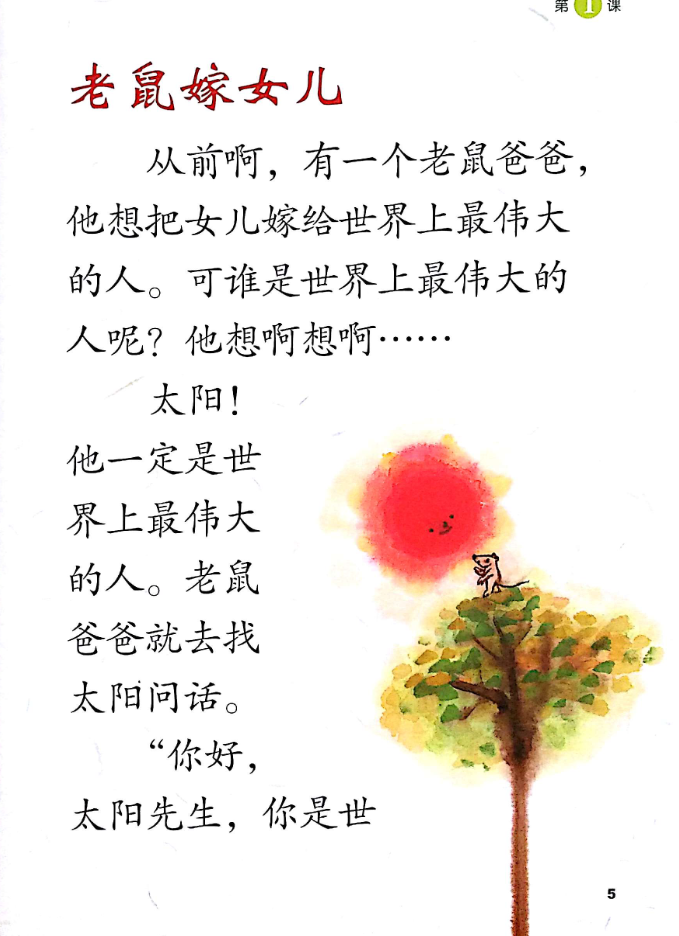 第1课
老鼠嫁女儿
从前啊，有一个老鼠爸爸，
他想把女儿嫁给世界上最伟大
的人。可谁是世界上最伟大的
人呢？他想啊想啊……
太阳！
他一定是世
界上最伟大
的人。老鼠
爸爸就去找
太阳问话。
“你好，
太阳先生，你是世
5